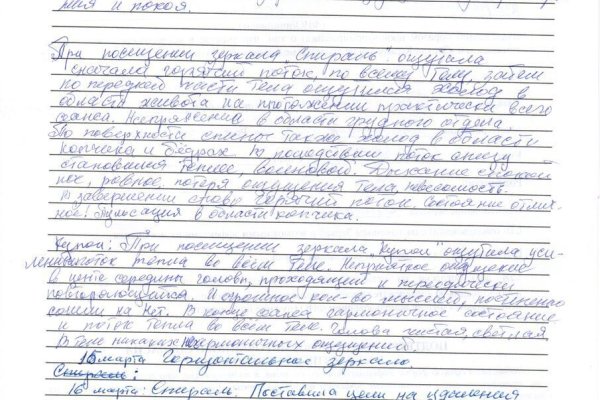 ния и покоя.
При посещении зеркала "Спираль" ощутила
сначала горячий поток, по всему телу, затем
по передней части тела ощущался холод в
области живота на протяжении практически всего
сеанса. Напряжение в области грудного отдела.
По поверхности спины также холод в области
копчика и бёдрах. В последствии поток снизу
становился теплее, волновой. Дыхание спокой
ное, ровное, потеря ощущения тела, невесомость.
В завершении снова горячий поток. Состояние отлич-
ное. Пульсация в области копчика.
Купол: При посещении зеркала "Купол" ощутила уси-
ление поток тепла во всём теле. Неприятное ощущение
в центе середины головы, проходящий и переодически
повторяющийся. И огромное кол-во мыслей, постепенно
сошли на нет. В конце сеанса гармоничное состояние
и поток тепла во всём теле. Голова чистая, светлая,
в теле никаких не гармоничных ощущений.
15 марта Горизонтальное зеркало.
Спираль:
16 марта: Спираль. Поставила цели на